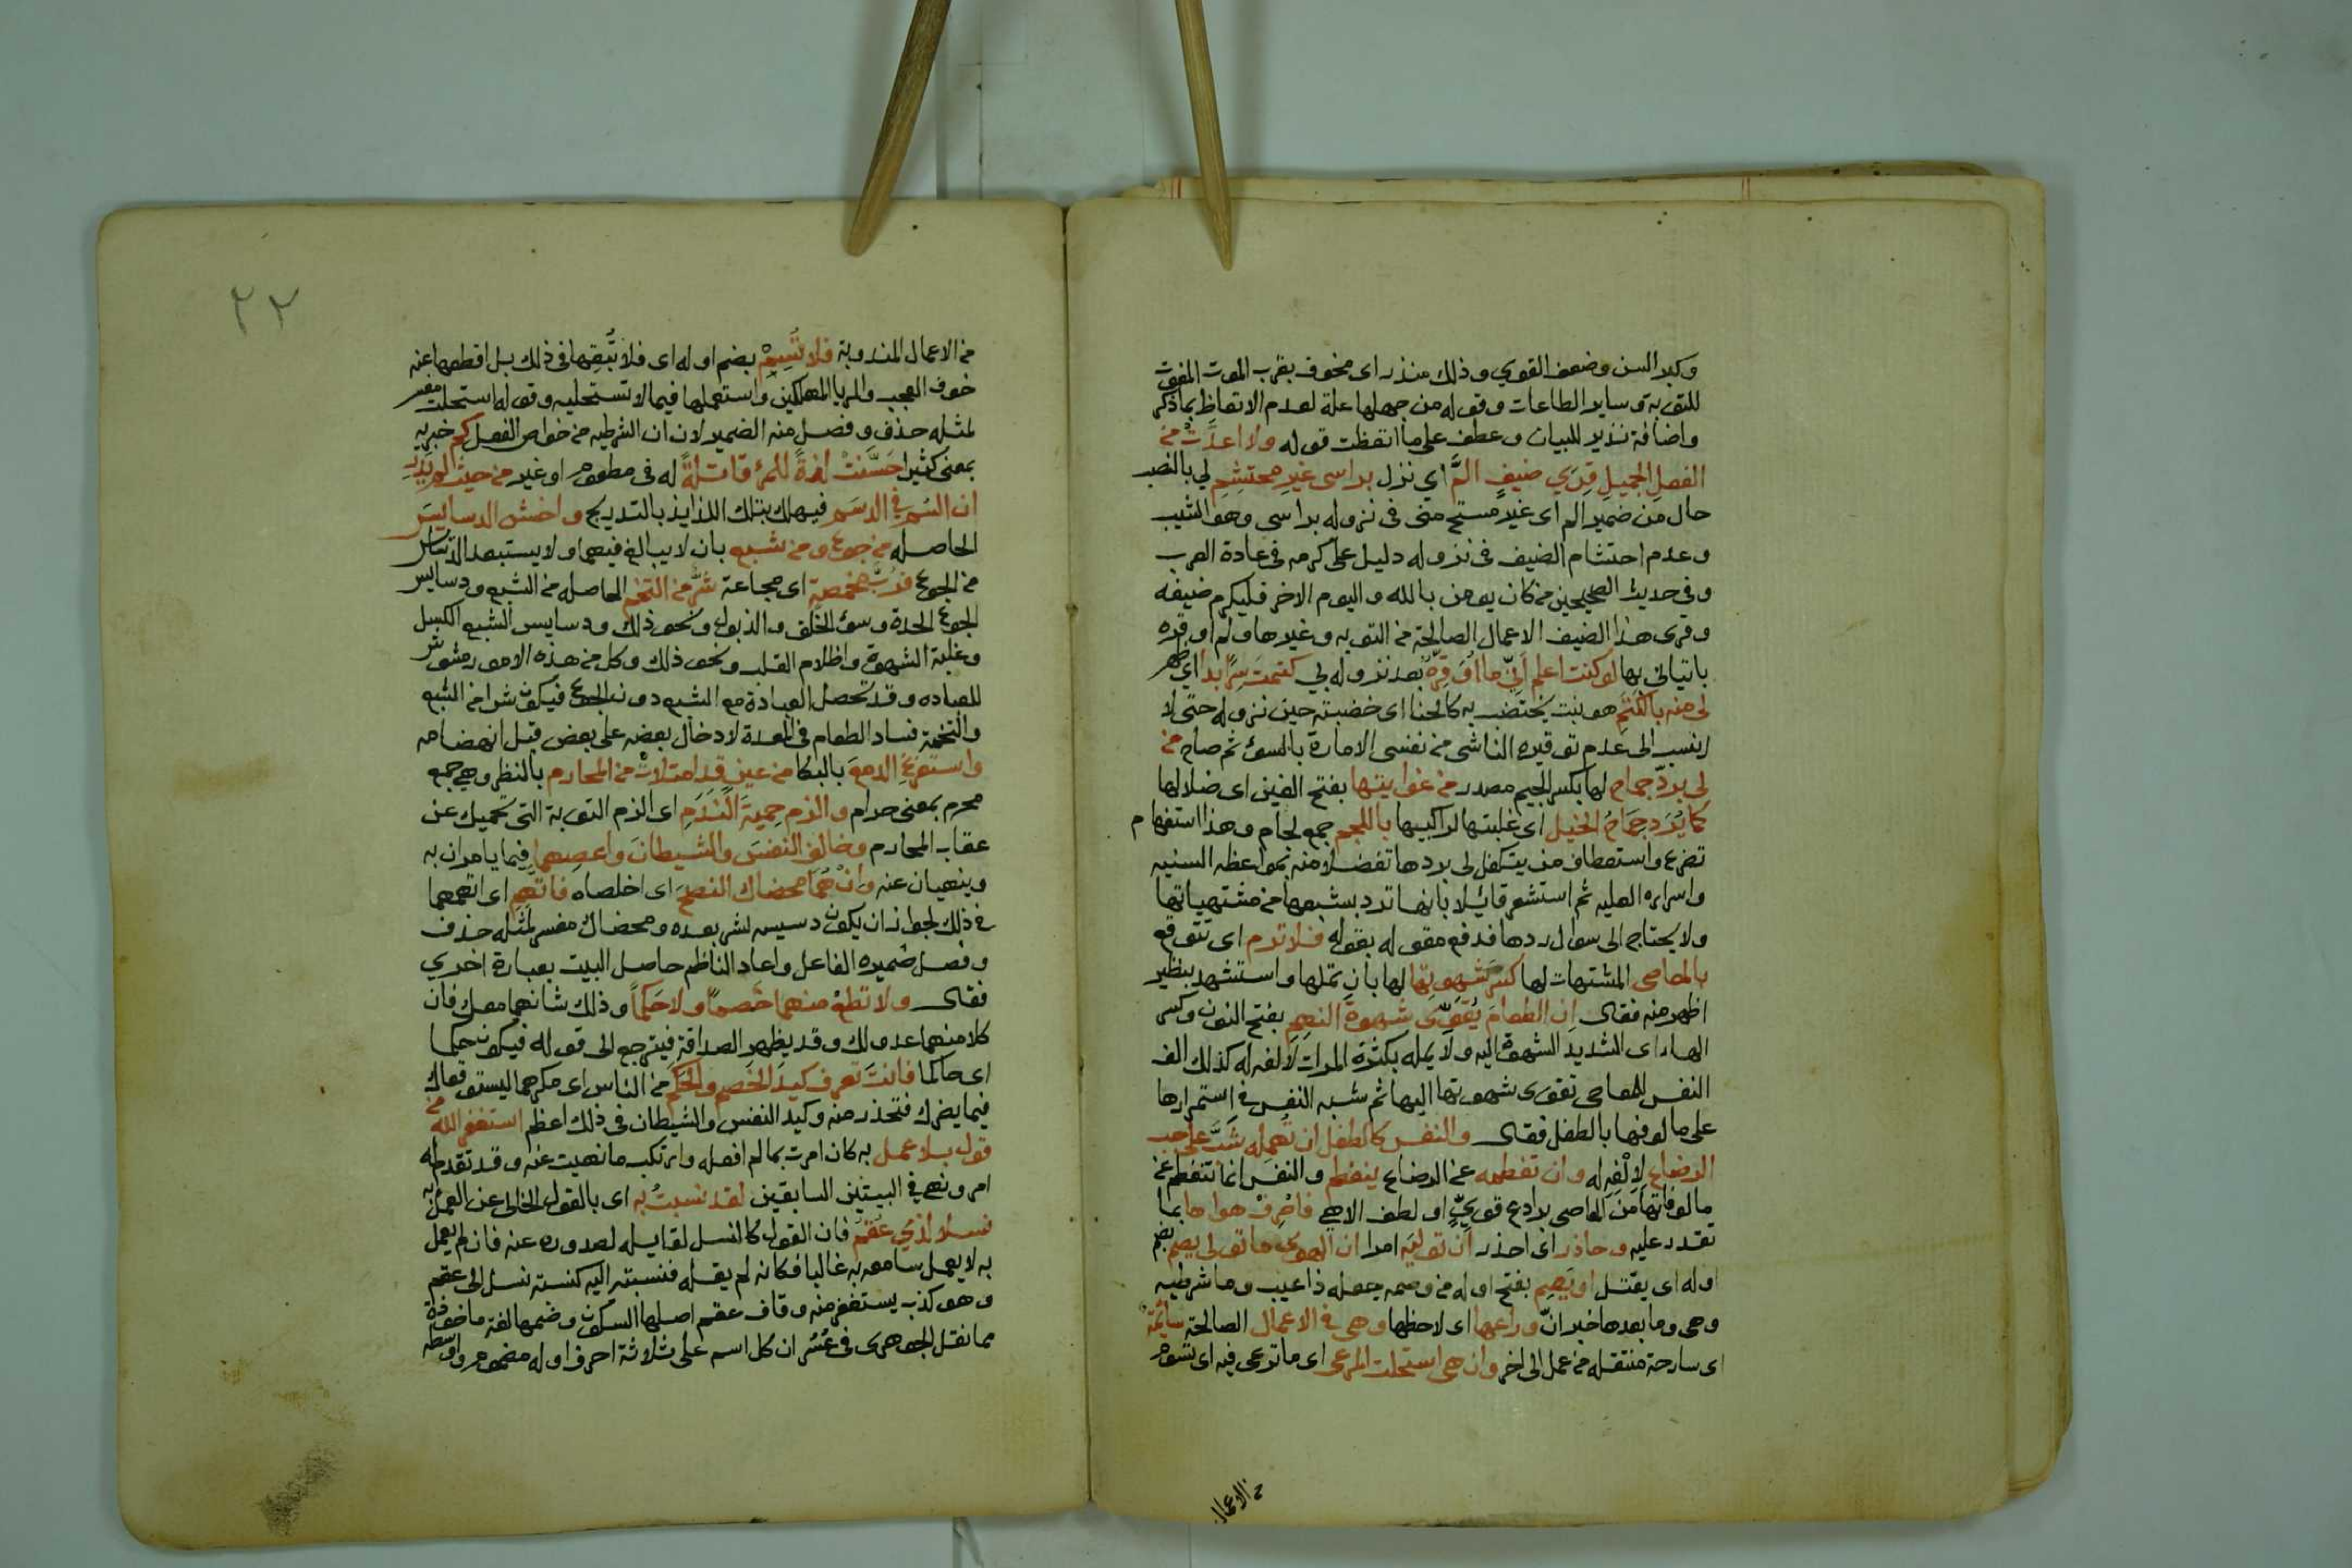 وكبر السن وضعف القوي وذلك منذر اى مخوف بقرب الموت المفوت
للتوبة وساير الطاعات وقوله من جهلها علة لعدم الاتعاظ بما ذكر
واضافة نذير للبيان وعطف على ما اتعظت قوله ولا اعدَّتْ من
الفعل الجميل قِرَي ضيفٍ المَّ اي نزل براسى غيرِ محتشِمِ لي بالنصب
حال من ضمير الم اى غير مستح منى فى نزوله براسى وهو الشيب
وعدم احتشام الضيف فى نزوله دليل على كرمه فى عادة العرب
وفى حديث الصحيحين من كان يومن بالله واليوم الاخر فليكرم ضيفه
وقرى هذا الضيف الاعمال الصالحة من التوبه وغيرها ولم اوقره
باتيانى بها لو كنت اعلم اَنّي ما اُوَقِّرهُ بعد نزوله بي كتمت سِرًّا بدا اي ظهر
لى منه بالكتَمِ هو نبت يختضب به كالحنا اى خضبته حين نزوله حتى لا
انسب الى عدم توقيره الناشى من نفسى الامارة بالسوء ثم صاح من
لى بردّ جماح لها بكسر الجيم مصدر من غوايتها بفتح الغين اى ضلالها
كما يُرَد جِمَاحُ الخيل اى غلبتها لراكبيها باللجم جمع لجام وهذا استفهام
تضرع واستعطاف من يتكفل لى بردها تفضلا منه بمواعظه السنيه
واسراره العليه ثم استشعر قائلا بانها ترد بشبعها من مشتهياتها
ولا يحتاج الى سوال ردها فدفع مقوله بقوله فلا ترم اى تتوقع
بالمعاصى المشتهات لها كسرَ شهوتها لها بان تملها واستشهد بنظير
اظهر منه فقال ان الطعامَ يُقوّى شهوةَ النَهِمِ بفتح النون وكسر
الهاء اى الشديد الشهوة اليه ولا يمله بكثرة المرات لالفه له كذلك الف
النفس المعاصى تقوى شهوتها اليها ثم شبه النفس فى استمرارها
على مالوفها بالطفل فقال والنفس كالطفل ان تُهمله شَبَّ على حب
الرضاع لاِلْفِهِ له وان تفطمه عن الرضاع ينفطم والنفس انما تنفطم عن
مالوفاتها من المعاصى برادع قويٍّ او لطف الاهى فاصْرِفْ هواها بما
تقدر عليه وحاذر اى احذر اَنْ توليَه امرا ان الهوى ما تولى يصم بضم
اوله اى يقتل او يَصِم بفتح اوله من وصمه جعله ذا عيب وما شرطيه
وهى وما بعدها خبر انّ وراعها اى لاحظها وهى فى الاعمال الصالحة سائمةٌ
اى سارحة منتقله من عمل الى اخر وان هى استحلت المرعى اى ما ترعى فيه اى تسوم
من الاعمال
٢٢
من الاعمال المندوبة فلا تُسِمْ بضم اوله اى فلا تُبْقِها فى ذلك بل اقطعها عنه
خوف العجب والريا المهلكين واستعملها فيما لا تستحليه وقوله استحلت مفسر
لمثله حذف وفصل منه الضمير لان ان الشرطيه من خواص الفعل كم خبريه
بمعنى كثيرا حَسَّنَتْ لذةً للمرْء قاتلةً له فى مطعوم او غيره من حيث لم يدْرِ
ان السُم فى الدسَم فيهلك بتلك اللذايذ بالتدريج واخش الدسايسَ
الحاصله من جوع ومن شبع بان لا يبالغ فيهما ولا يستبعد الدسايس
من الجوع فرُبَّ مخمصةٍ اى مجاعة شَرٌّ من التخم الحاصله من الشبع ودسايس
الجوع الحدة وسوء الخلق والذبول ونحو ذلك ودسايس الشبع الكسل
وغلبة الشهوة واظلام القلب ونحو ذلك وكل من هذه الامور مشوش
للعباده وقد تحصل العبادة مع الشبع دون الجوع فيكون شرا من الشبع
والتخمة فساد الطعام فى المعدة لادخال بعضه على بعض قبل انهضامه
واستفرغِ الدمعَ بالبكا من عينٍ قد امتلاتْ من المحارم بالنظر وهى جمع
محرم بمعنى حرام والزم حِميةَ النَّدَمِ اى الزم التوبة التى تحميك عن
عقاب المحارم وخالفِ النفسَ والشيطانَ واعصِهما فيما يامران به
وينهيان عنه وانْ هُما محضاك النصحَ اى اخلصاه فاتهم اى اتهمهما
فى ذلك لجواز ان يكون دسيسه لشر بعده ومحضاك مفسر لمثله حذف
وفصل ضميره الفاعل واعاد الناظم حاصل البيت بعبارة اخري
فقال ولا تطعْ منهما خصمًا ولا حَكَماً وذلك شانهما معك فان
كلا منهما عدو لك وقد يظهر الصداقة فيترجع الى قوله فيكون حكما
اى حاكما فانتَ تعرف كيدَ الخَصم والحَكمِ من الناس اى مكرهما ليستوقعاك
فيما يضرك فتحذر منه وكيد النفس والشيطان فى ذلك اعظم استغفر الله من
قول بلا عمل به كان امرت بما لم افعله وارتكب ما نهيت عنه وقد تقدم له
امر ونهى فى البيتين السابقين لقد نسبتُ به اى بالقول الخالى عن العمل به
نسلا لذي عُقُمٍ فان القول كالنسل لقايله لصدوره عنه فان لم يعمل
به لا يعمل سامعه به غالبا فكانه لم يقله فنسبته اليه كنسبة نسل الى عقيم
وهو كذب يستغفر منه وقاف عقم اصلها السكون وضمها لغة ماخوذة
مما نقل الجوهرى فى عُسُر ان كل اسم على ثلاثة احرف اوله مضموم واوسطه